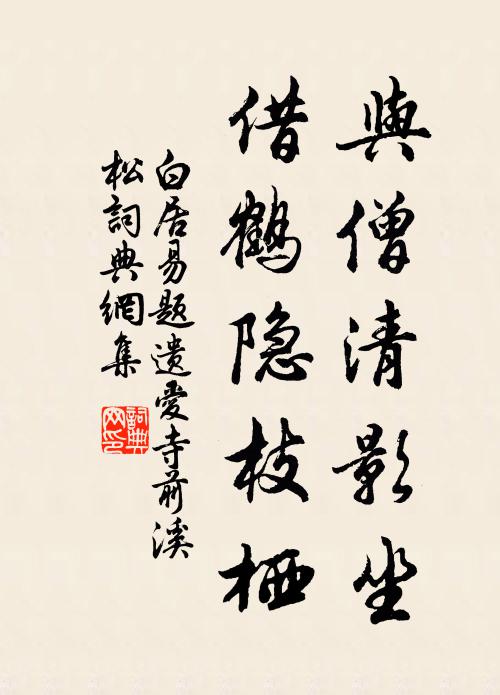 與僧清影坐
借鶴隐枝栖
白居易题遺愛寺前溪
松詞典網集
詞典
网印